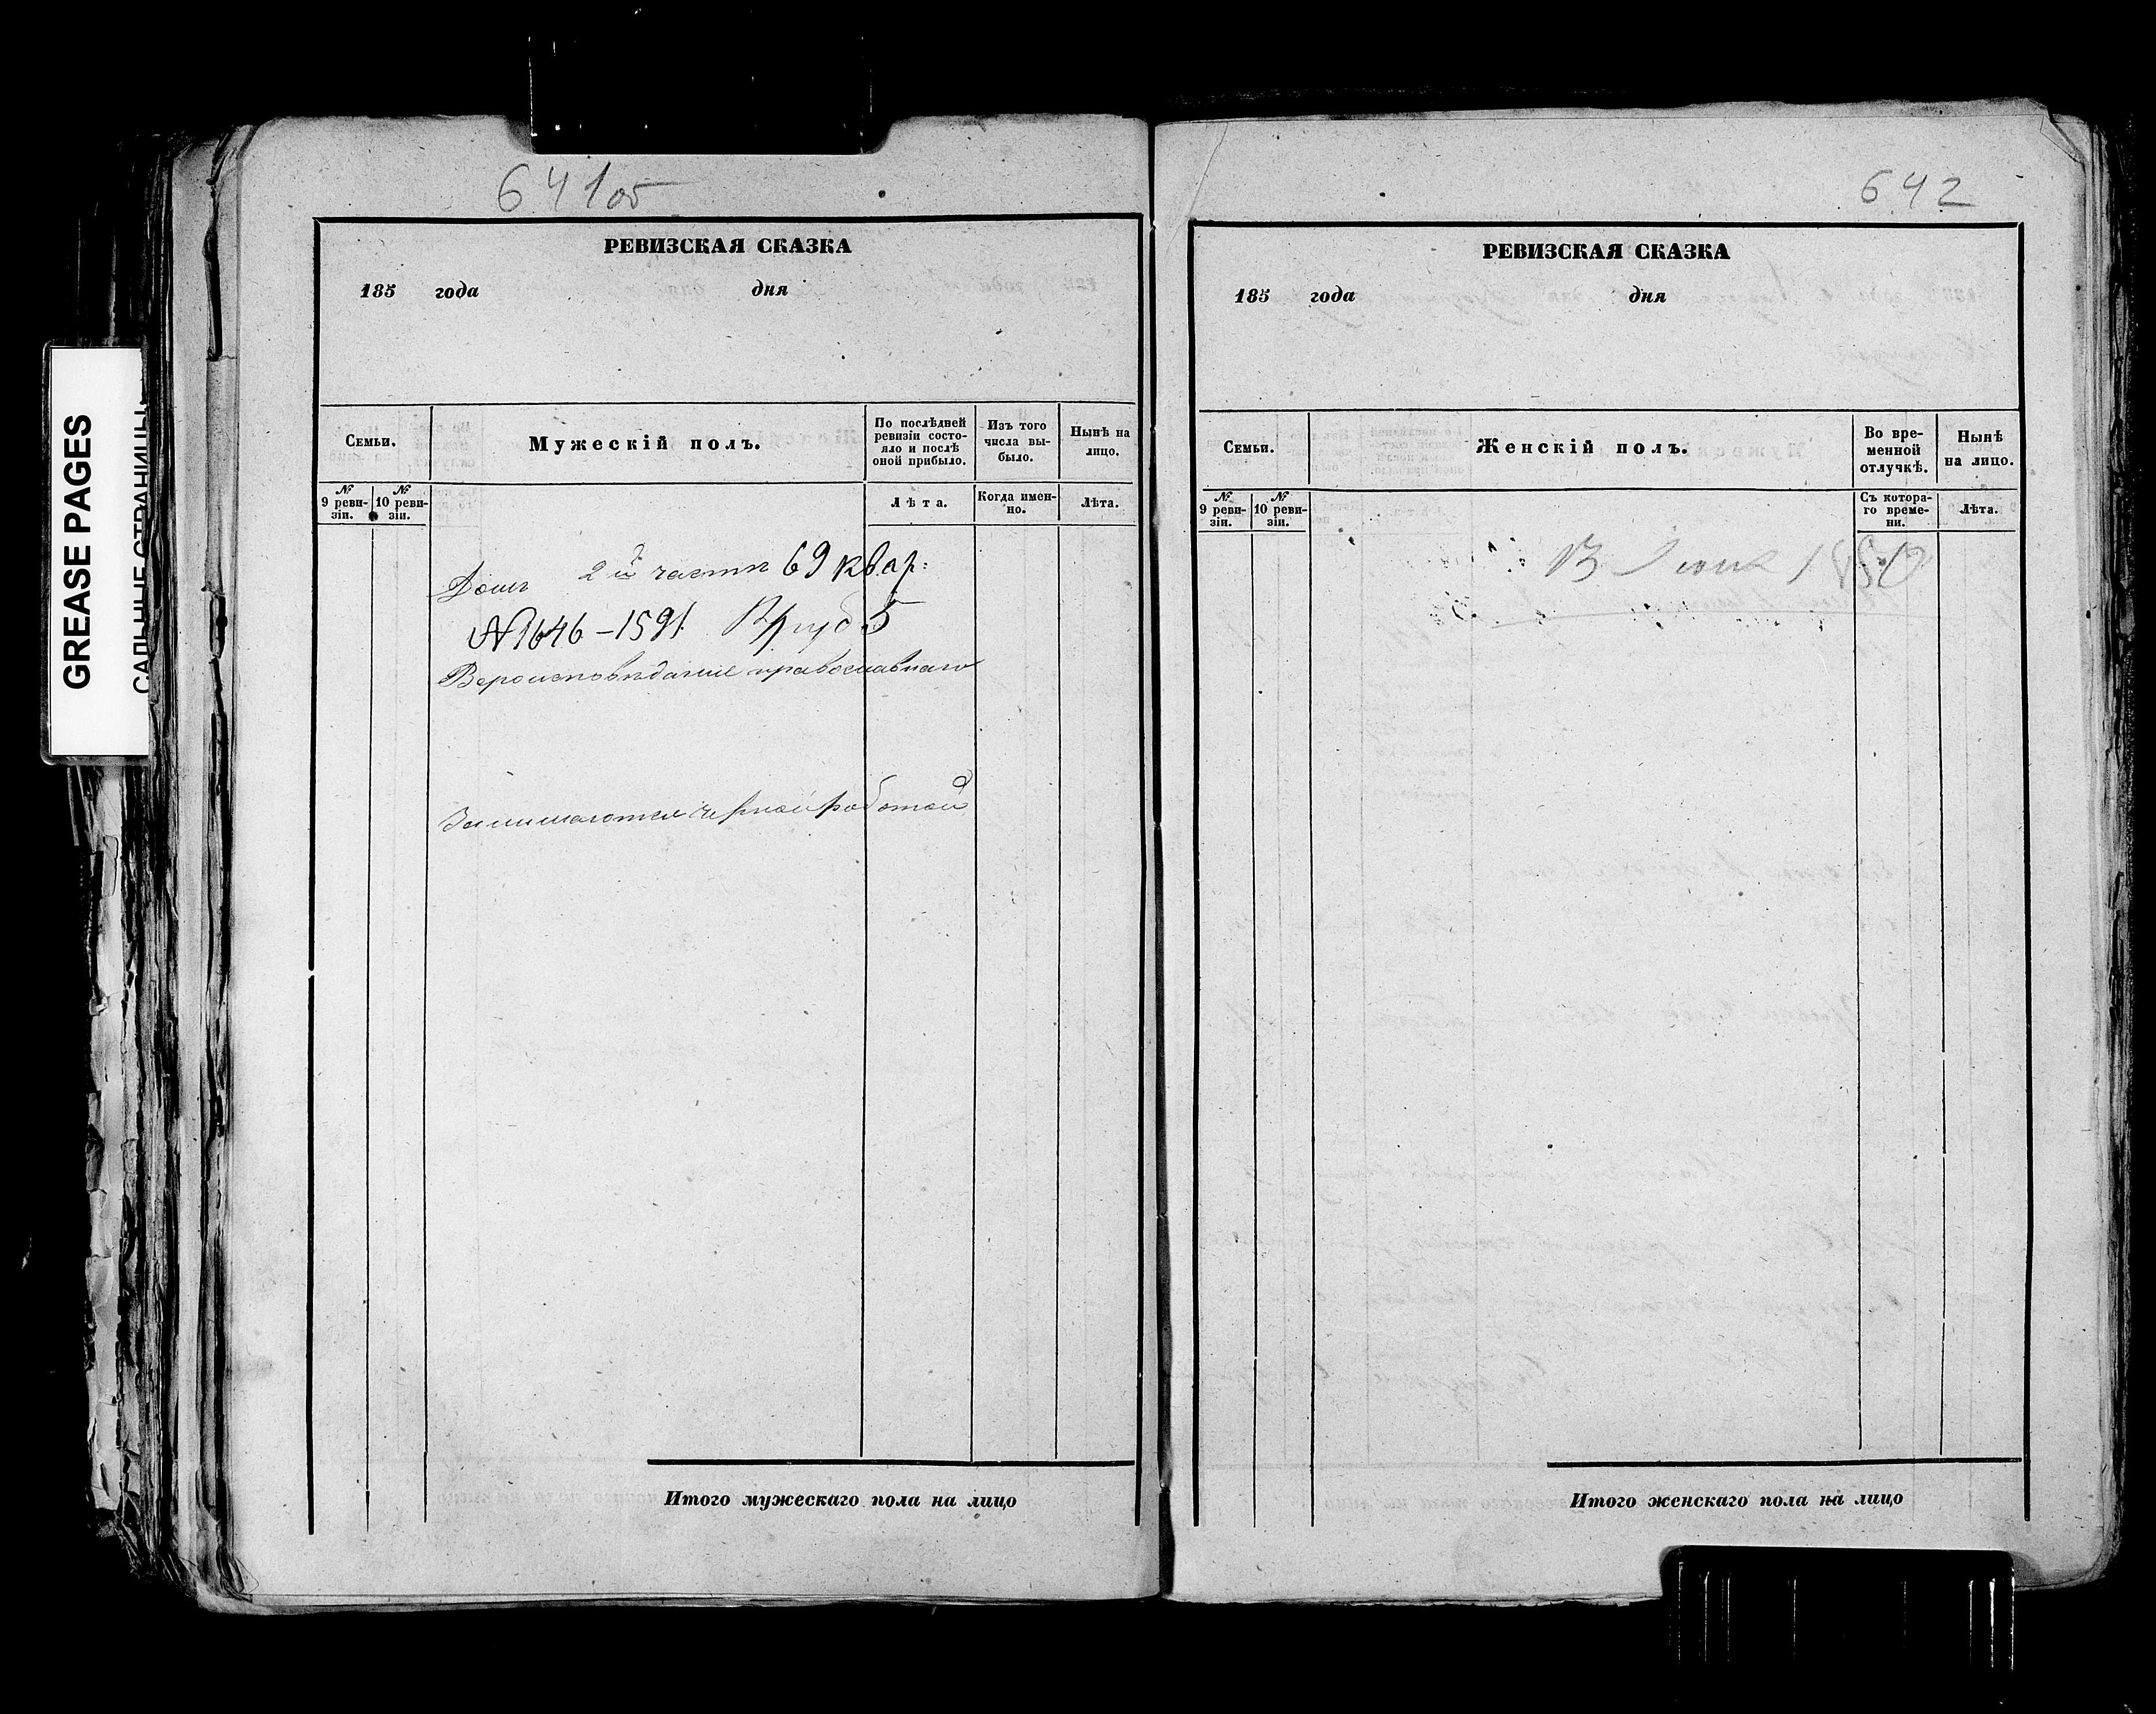 GREASE PAGES
САЛЬНЫЕ СТРАНИЦЫ
641об
РЕВИЗСКАЯ СКАЗКА
185 года дня
Семьи.
Мужескій полъ.
По послѣдней ревизіи состо-
яло и послѣ
оной прибыло.
Изъ того
числа вы-
было.
Нынѣ на
лицо.
№
9 реви-
зіи.
№
10 реви-
зіи.
Лѣта.
Когда имен-
но.
Лѣта.
Домъ 2й части 69 квар:
№ 1646-1591 5
Вероисповѣданіе православнаго
Занимаются черной работой
Итого мужескаго пола на лицо
642
РЕВИЗСКАЯ СКАЗКА
185 года дня
Семьи.
Женскій полъ.
Во вре-
менной
отлучкѣ.
Нынѣ
на лицо.
№
9 реви-
зіи.
№
10 реви-
зіи.
Съ котора-
го време-
ни.
Лѣта.
Итого женскаго пола на лицо